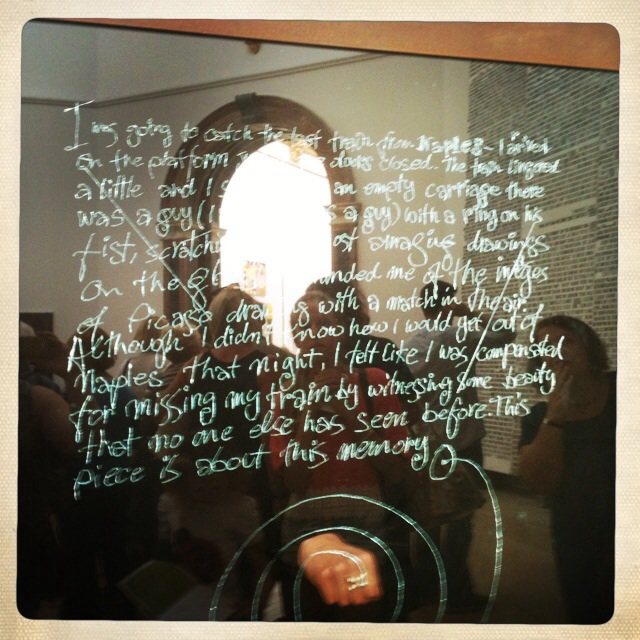 I was going to catch the last train from Naples. I arrived
on the platform doors closed. The train lingered
a little and I s an empty carriage there
was a guy (( s a guy) with a ring on his
fist, scratch ost amazing drawings
on the gl inded me of the images
of Picasso draw g with a match in the air.
Although I didn't know how i would get out of
Naples that night, I felt like I was compensated
for missing my train by witnessing some beauty
that no one else has seen before. This
piece is about this memory